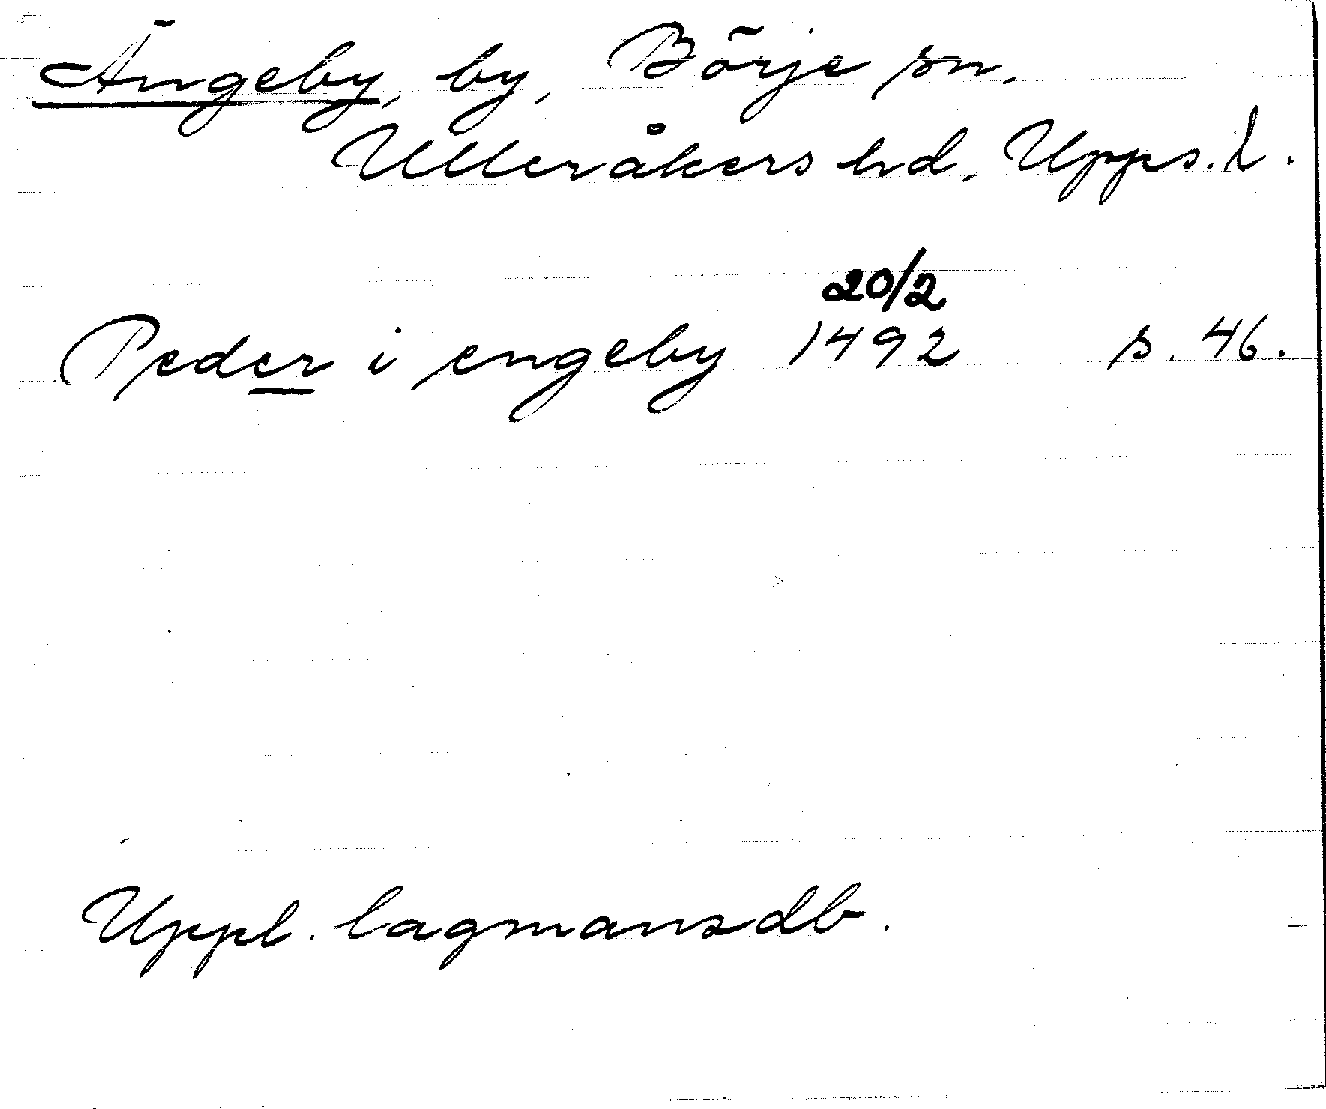 Ängeby, by, Börje sn.
Ulleråkers hd. Upps. l.
20/2
Peder i engeby 1492 s. 46.
Uppl. lagmansdb.